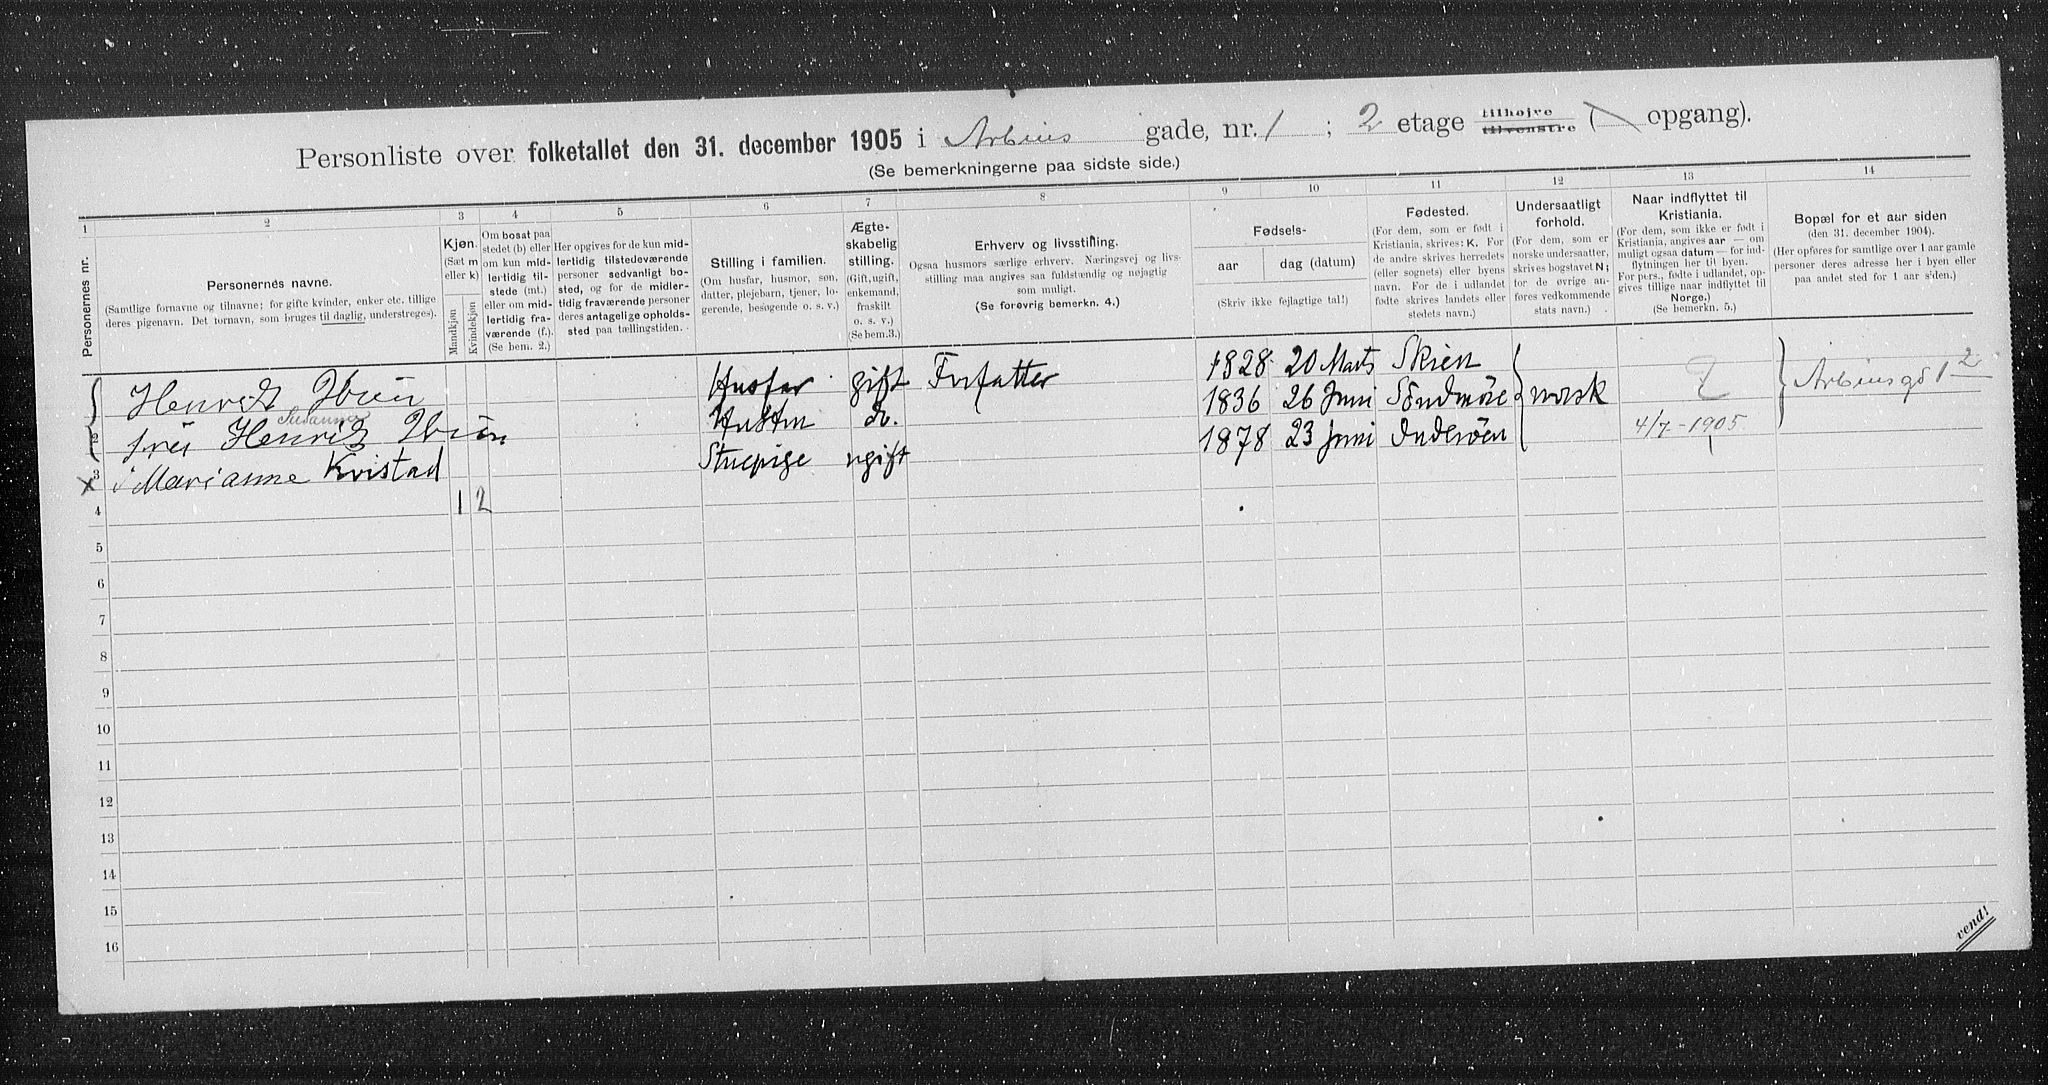 Personliste over folketallet den 31. december 1905 i Arbins gade, nr. 1 ; 2 etage tilhøjre tilvenstre ( opgang).
(Se bemerkningerne paa sidste side.)
1 2 3 4 5 6 7 8 9 10 11 12 13 14
Personernes nr.
Personernes navne.
(Samtlige fornavne og tilnavne; for gifte kvinder, enker etc. tillige
deres pigenavn. Det fornavn, som bruges til daglig, understreges).
Kjøn.
(Sæt m
eller k)
Mandkjøn
Kvindekjøn
Om bosat paa
stedet (b) eller
om kun mid-
lertidig til-
stede (mt.)
eller om mid-
lertidig fra-
værende (f.).
(Se bem. 2.)
Her opgives for de kun mid-
lertidig tilstedeværende
personer sedvanligt bo-
sted, og for de midler-
tidig fraværende personer
deres antagelige opholds-
sted paa tællingstiden.
Stilling i familien.
(Om husfar, husmor, søn,
datter, plejebarn, tjener, lo-
gerende, besøgende o. s. v.)
Ægte-
skabelig
stilling.
(Gift, ugift,
enkemand,
fraskilt
o. s. v.)
(Se bem. 3.)
Erhverv og livsstilling.
Ogsaa husmors særlige erhverv. Næringsvej og livs-
stilling maa angives saa fuldstændig og nøjagtig
som muligt.
(Se forøvrig bemerkn. 4.)
Fødsels-
aar dag (datum)
(Skriv ikke fejlagtige tal!)
Fødested.
(For dem, som er født i
Kristiania, skrives: K. For
de andre skrives herredets
(eller sognets) eller byens
navn. For de i udlandet
fødte skrives landets eller
stedets navn.)
Undersaatligt
forhold.
(For dem, som er
norske undersatter,
skrives bogstavet N;
for de øvrige an-
føres vedkommende
stats navn.)
Naar indflyttet til
Kristiania.
(For dem, som ikke er født i
Kristiania, angives aar — om
muligt ogsaa datum — for ind-
flytningen her til byen.
For pers., fødte i udlandet, op-
gives tillige naar indflyttet til
Norge.)
(Se bemerkn. 5.)
Bopæl for et aar siden
(den 31. december 1904).
(Her opføres for samtlige over 1 aar gamle
personer deres adresse her i byen eller
paa andet sted for 1 aar siden.)
Henrik Ibsen Husfar gift Forfatter 1828 20 Marts Skien norsk ? Arbinsgd 1 2
Susanna
2 fru Henrik Ibsen Hustru do. 1836 26 Juni Söndmöre
3 Marianne Kvistad Stuepige ugift 1878 23 Juni Inderöen 4/7 - 1905
4 1 2
5
6
7
8
9
10
11
12
13
14
15
16
vend!